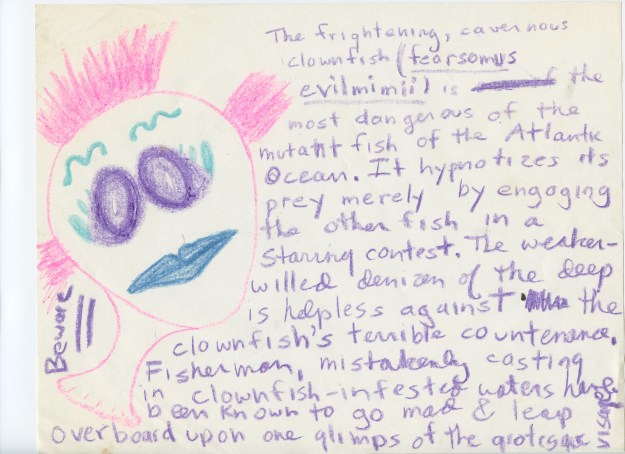 The frightening, cavernous
clownfish (fearsomus
evilmimii) is the
most dangerous of the
mutant fish of the Atlantic
Ocean. It hypnotizes its
prey merely by engaging
the other fish in a
staring contest. The weaker-
willed denizen of the deep
is helpless against the
clownfish's terrible countenance.
Fisherman, mistakenly casting
in clownfish-infested waters have
been known to go mad & leap
overboard upon one glimps of the grotesque
visage
Beware